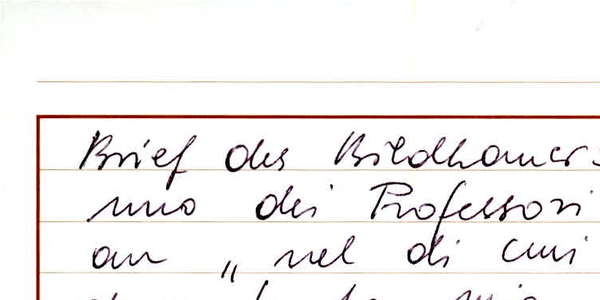 Brief des Bildhauers
uno dei Professori
an „nel di cui